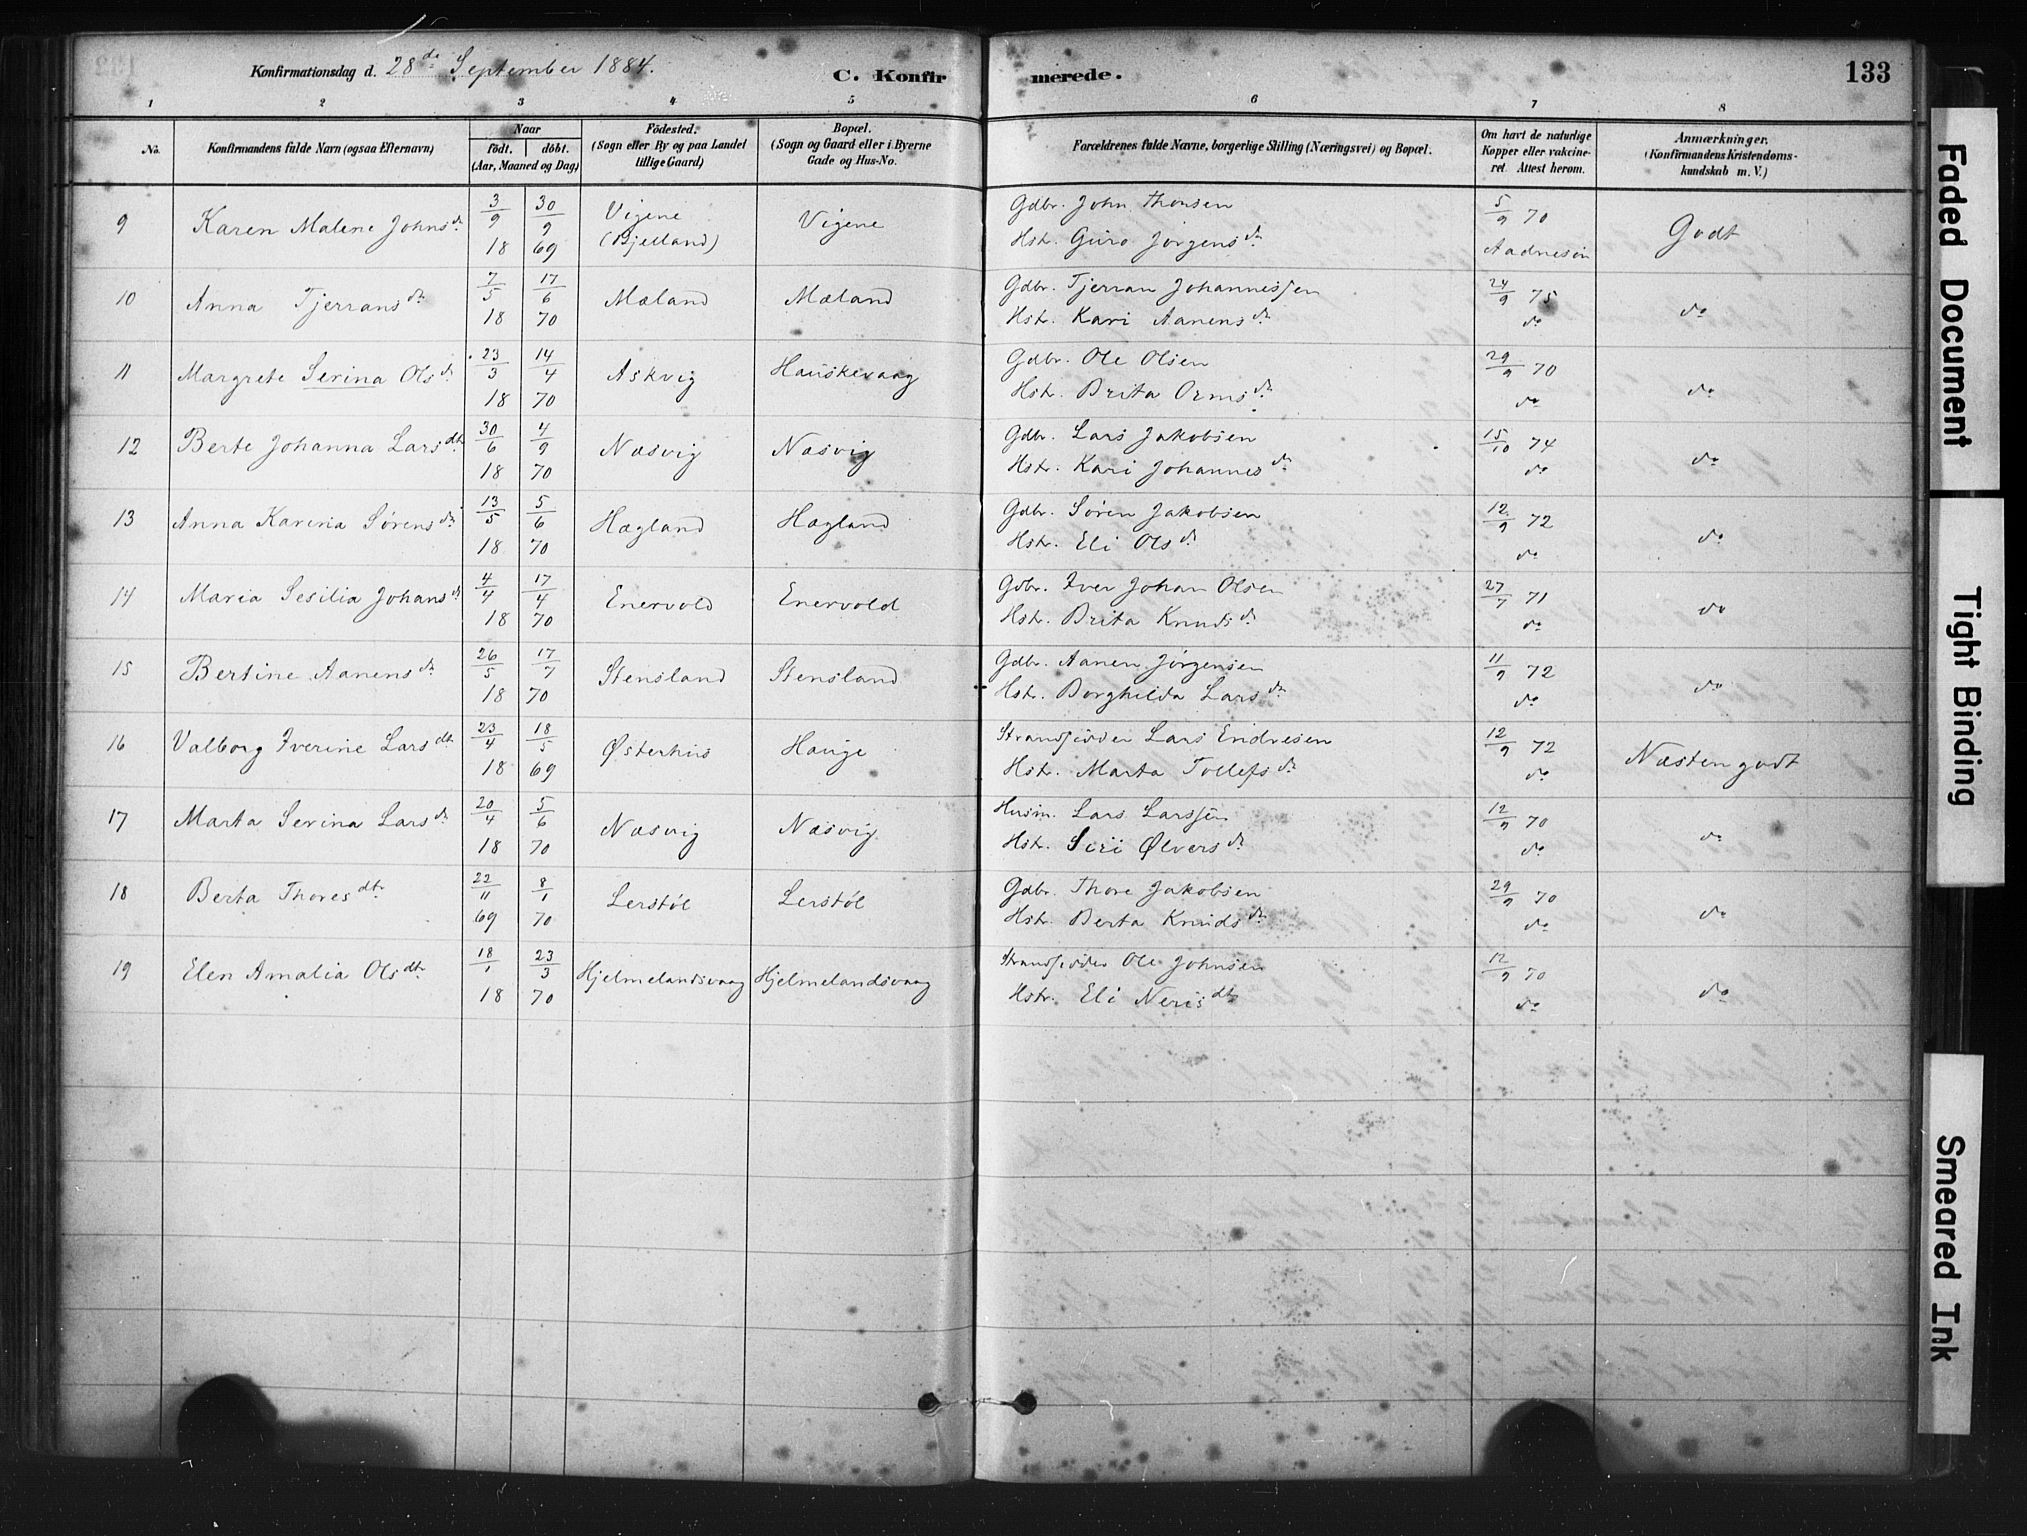 Konfirmationsdag d. 28de September 1884.
C. Konfirmerede.
133
1 2 3 4 5 6 7 8
No.
Konfirmandens fulde Navn (ogsaa Efternavn)
Naar
födt. döbt.
(Aar, Maaned og Dag)
Födested.
(Sogn eller By og paa Landet
tillige Gaard)
Bopæl.
(Sogn og Gaard eller i Byerne
Gade og Hus-No.
Forældrenes fulde Navne, borgerlige Stilling (Næringsvei) og Bopæl.
Om havt de naturlige
Kopper eller vakcine-
ret Attest herom.
Anmærkninger.
(Konfirmandens Kristendoms-
kundskab m. V.)
9 Karen Malene Johnsdr 3/9 18 30/9 69 Vigene (Bjelland) Vigene
Gdbr. John Thorsen
Hstr. Guro Jørgensdr
5/9 70 Aadnesen Godt
10 Anna Tjerransdr 7/5 18 17/6 70 Mæland Mæland
Gdbr. Tjerran Johannessen
Hstr. Kari Aanensdr
24/9 75 do do
11 Margrete Serina Olsdr 23/3 18 14/4 70 Askvig Hauskevaag
Gdbr. Ole Olsen
Hstr. Brita Ormsdr
29/9 70 do do
12 Berte Johanna Larsdtr 30/6 18 4/9 70 Næsvig Næsvig
Gdbr. Lars Jakobsen
Hstr. Kari Johannesdr
15/10 74 do do
13 Anna Karina Sørensdr 13/5 18 5/6 70 Hægland Hægland
Gdbr. Søren Jakobsen
Hstr. Eli Olsdr
12/9 72 do do
14 Maria Sesilia Johansdr 4/4 18 17/4 70 Enervold Enervold
Gdbr. Iver Johan Olsen
Hstr. Brita Knudsdr
27/7 71 do do
15 Bertine Aanensdr 26/5 18 17/7 70 Stensland Stensland
Gdbr. Aanen Jørgensen
Hstr. Borghilda Larsdr
11/9 72 do do
16 Valborg Iverine Larsdtr 23/4 18 18/5 69 Østerhus Hauge
Strandsidder Lars Endresen
Hstr. Marta Tollefsdr
12/9 72 do Næsten godt
17 Marta Serina Larsdr 20/4 18 5/6 70 Næsvig Næsvig
Husm. Lars Larssen
Hstr. Siri Ølversdr
12/9 70 do do
18 Berta Thoresdtr 22/11 69 8/1 70 Lerstøl Lerstøl
Gdbr. Thore Jakobsen
Hstr. Berta Knudsdr
29/9 70 do do
19 Elen Amalia Olsdtr 18/1 18 23/3 70 Hjelmelandsvaag Hjelmelandsvaag
Strandsidder Ole Johnsen
Hstr. Eli Nerisdtr
12/9 70 do do
Faded Document
Tight Binding
Smeared Ink